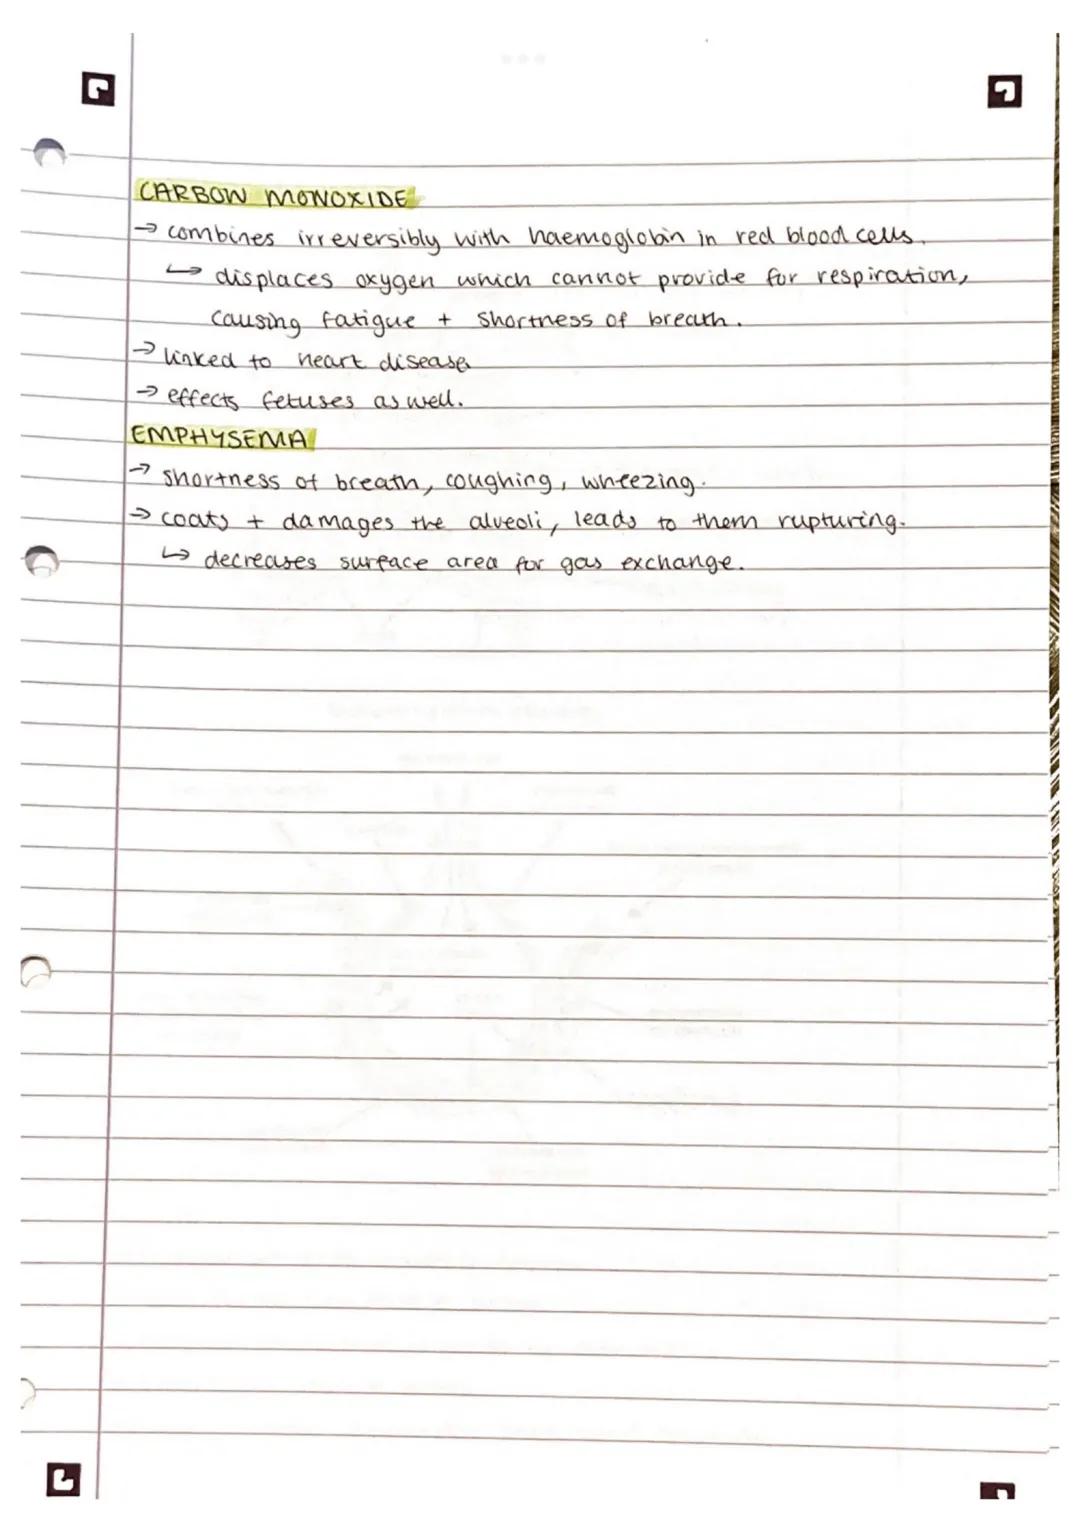 CARBON MONOXIDE
→ combines irreversibly with haemoglobin in red blood cells.
↳ displaces oxygen which cannot provide for respiration,
causing fatigue + shortness of breath.
→ linked to heart disease
→ effects fetuses as well.
EMPHYSEMA
→ shortness of breath, coughing, wheezing.
→ coats + damages the alveoli, leads to them rupturing.
↳ decreases surface area for gas exchange.